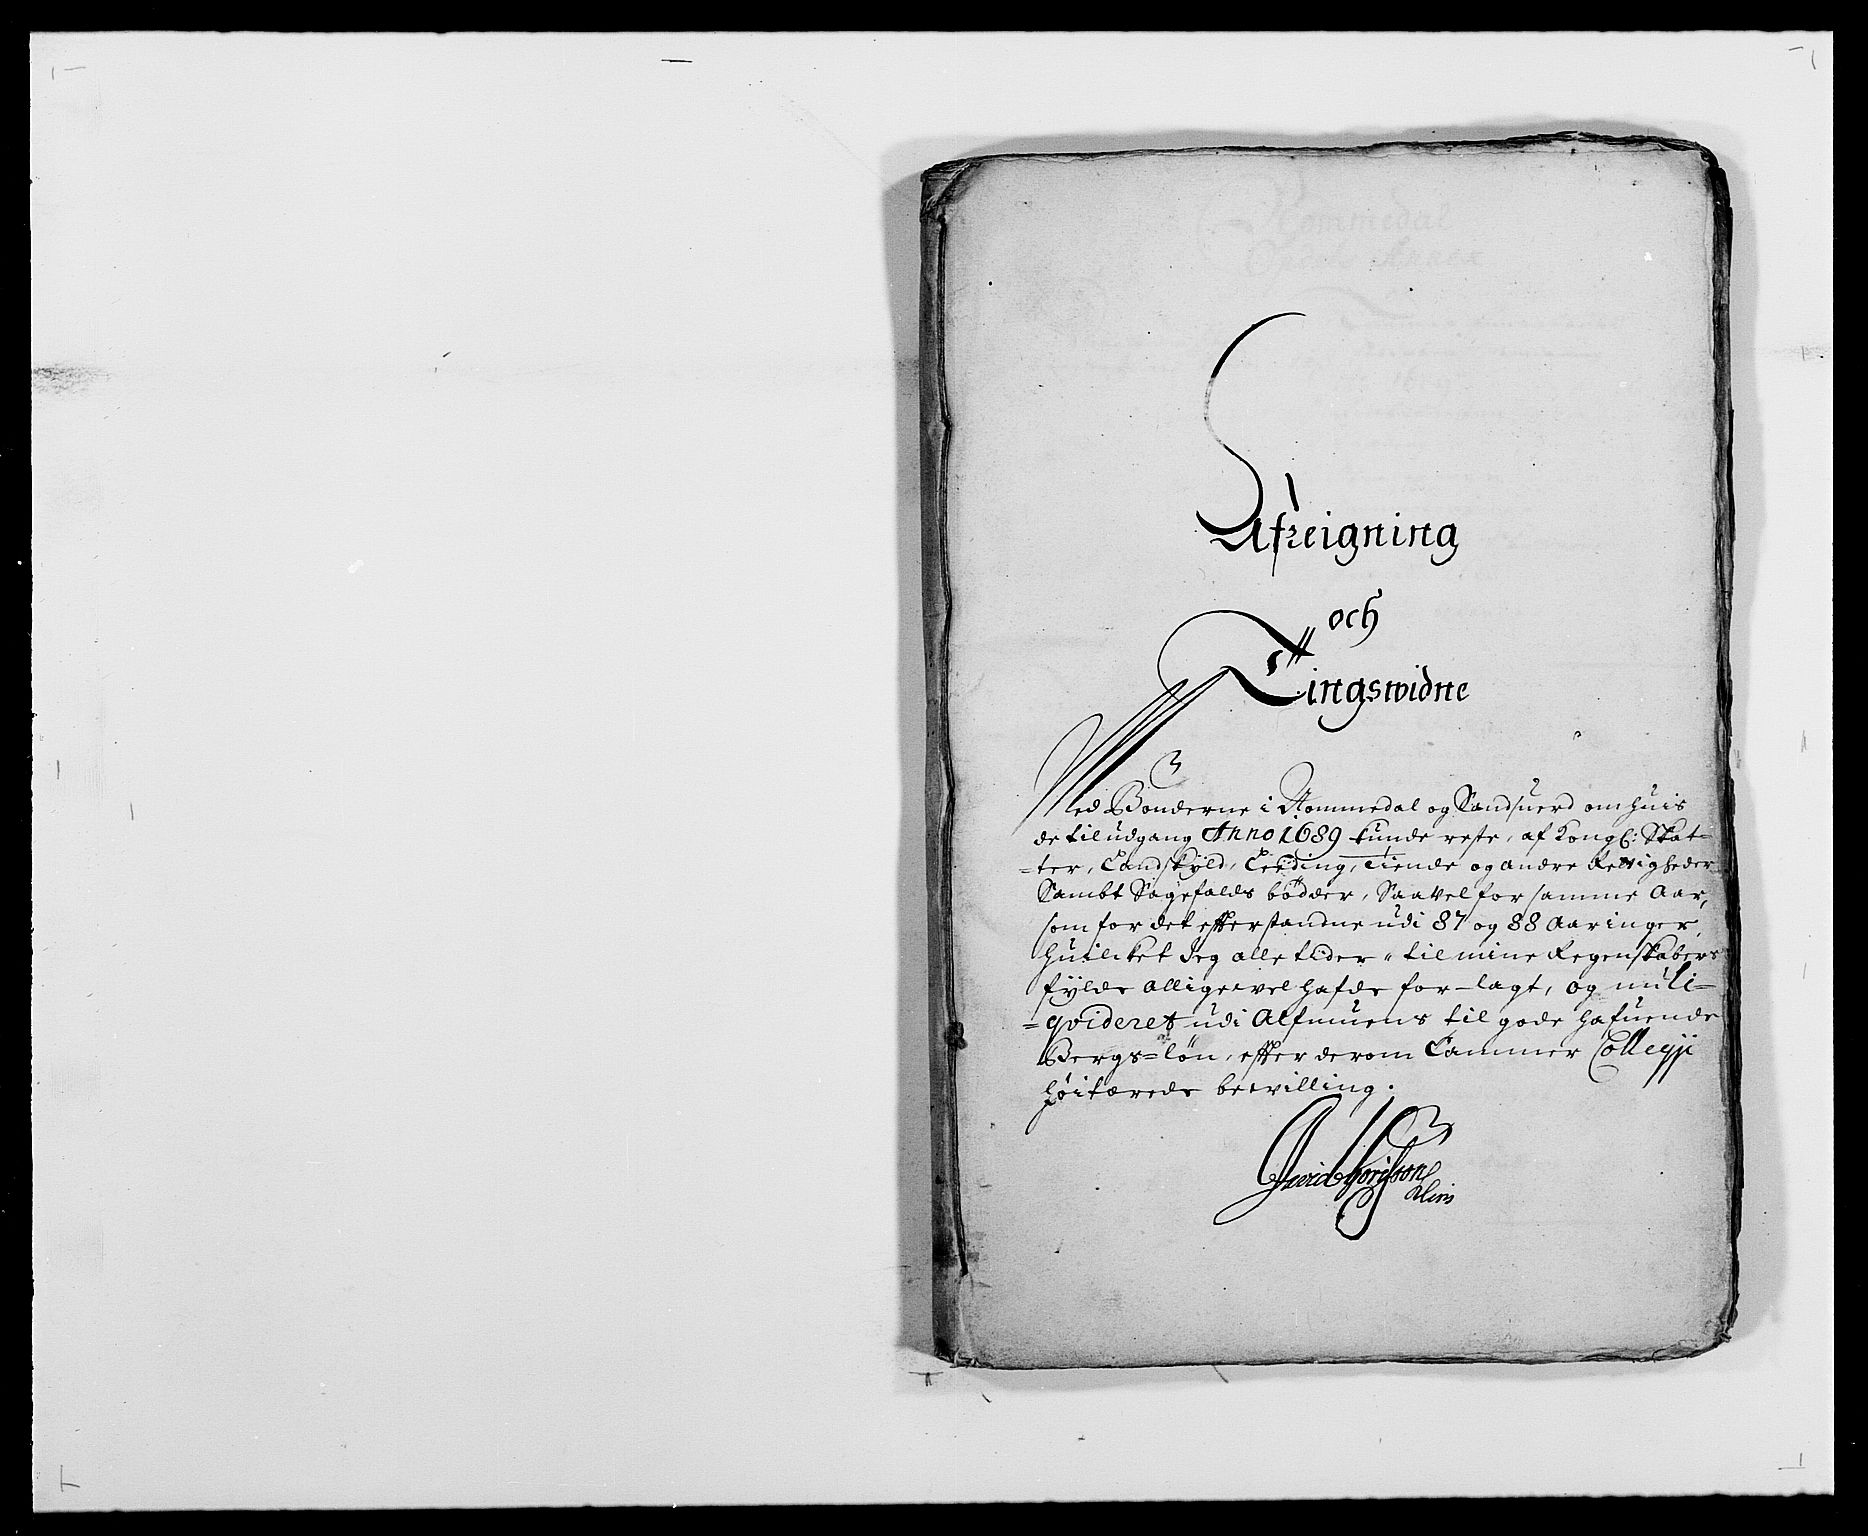 Afreigning
och
Tingswidne
Med Bønderne i Nommedal og Sandsuerd om huis
de til udgang Anno 1689 kunde reste, af Kongl: Skat-
=ter, Landskyld, Leeding, Tiende og andre Rettigheder
Sambt Sagefalds bødder, Saavel for samme Aar,
som for det efterstandne udi 87 og 88 Aaringer,
huilcket Jeg alle tider til mine Regenskabers
fylde alligevel hafde for-lagt, og nu li-
=qvideret udi Almuens til gode hafuende
Bergs=løn, efter derom Cammer Collegij
høitærede bewilling.